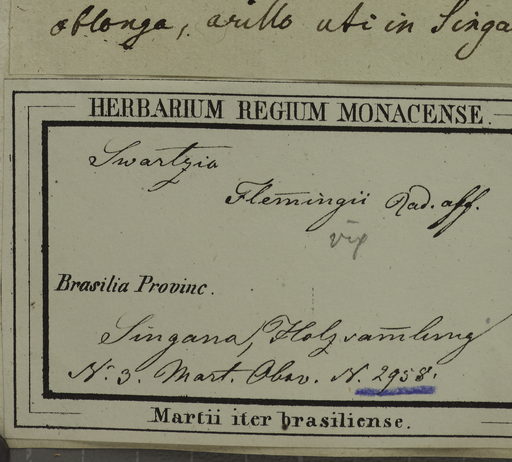 oblonga, arillo uti in Singa
HERBARIUM REGIUM MONACENSE.
Swartzia
Flem̄ingii Rad. aff.
vix
Brasilia Provinc.
Singana, Holzsam̄lung
N. 3. Mart. Obsv. N. 2958.
Martii iter brasiliense.